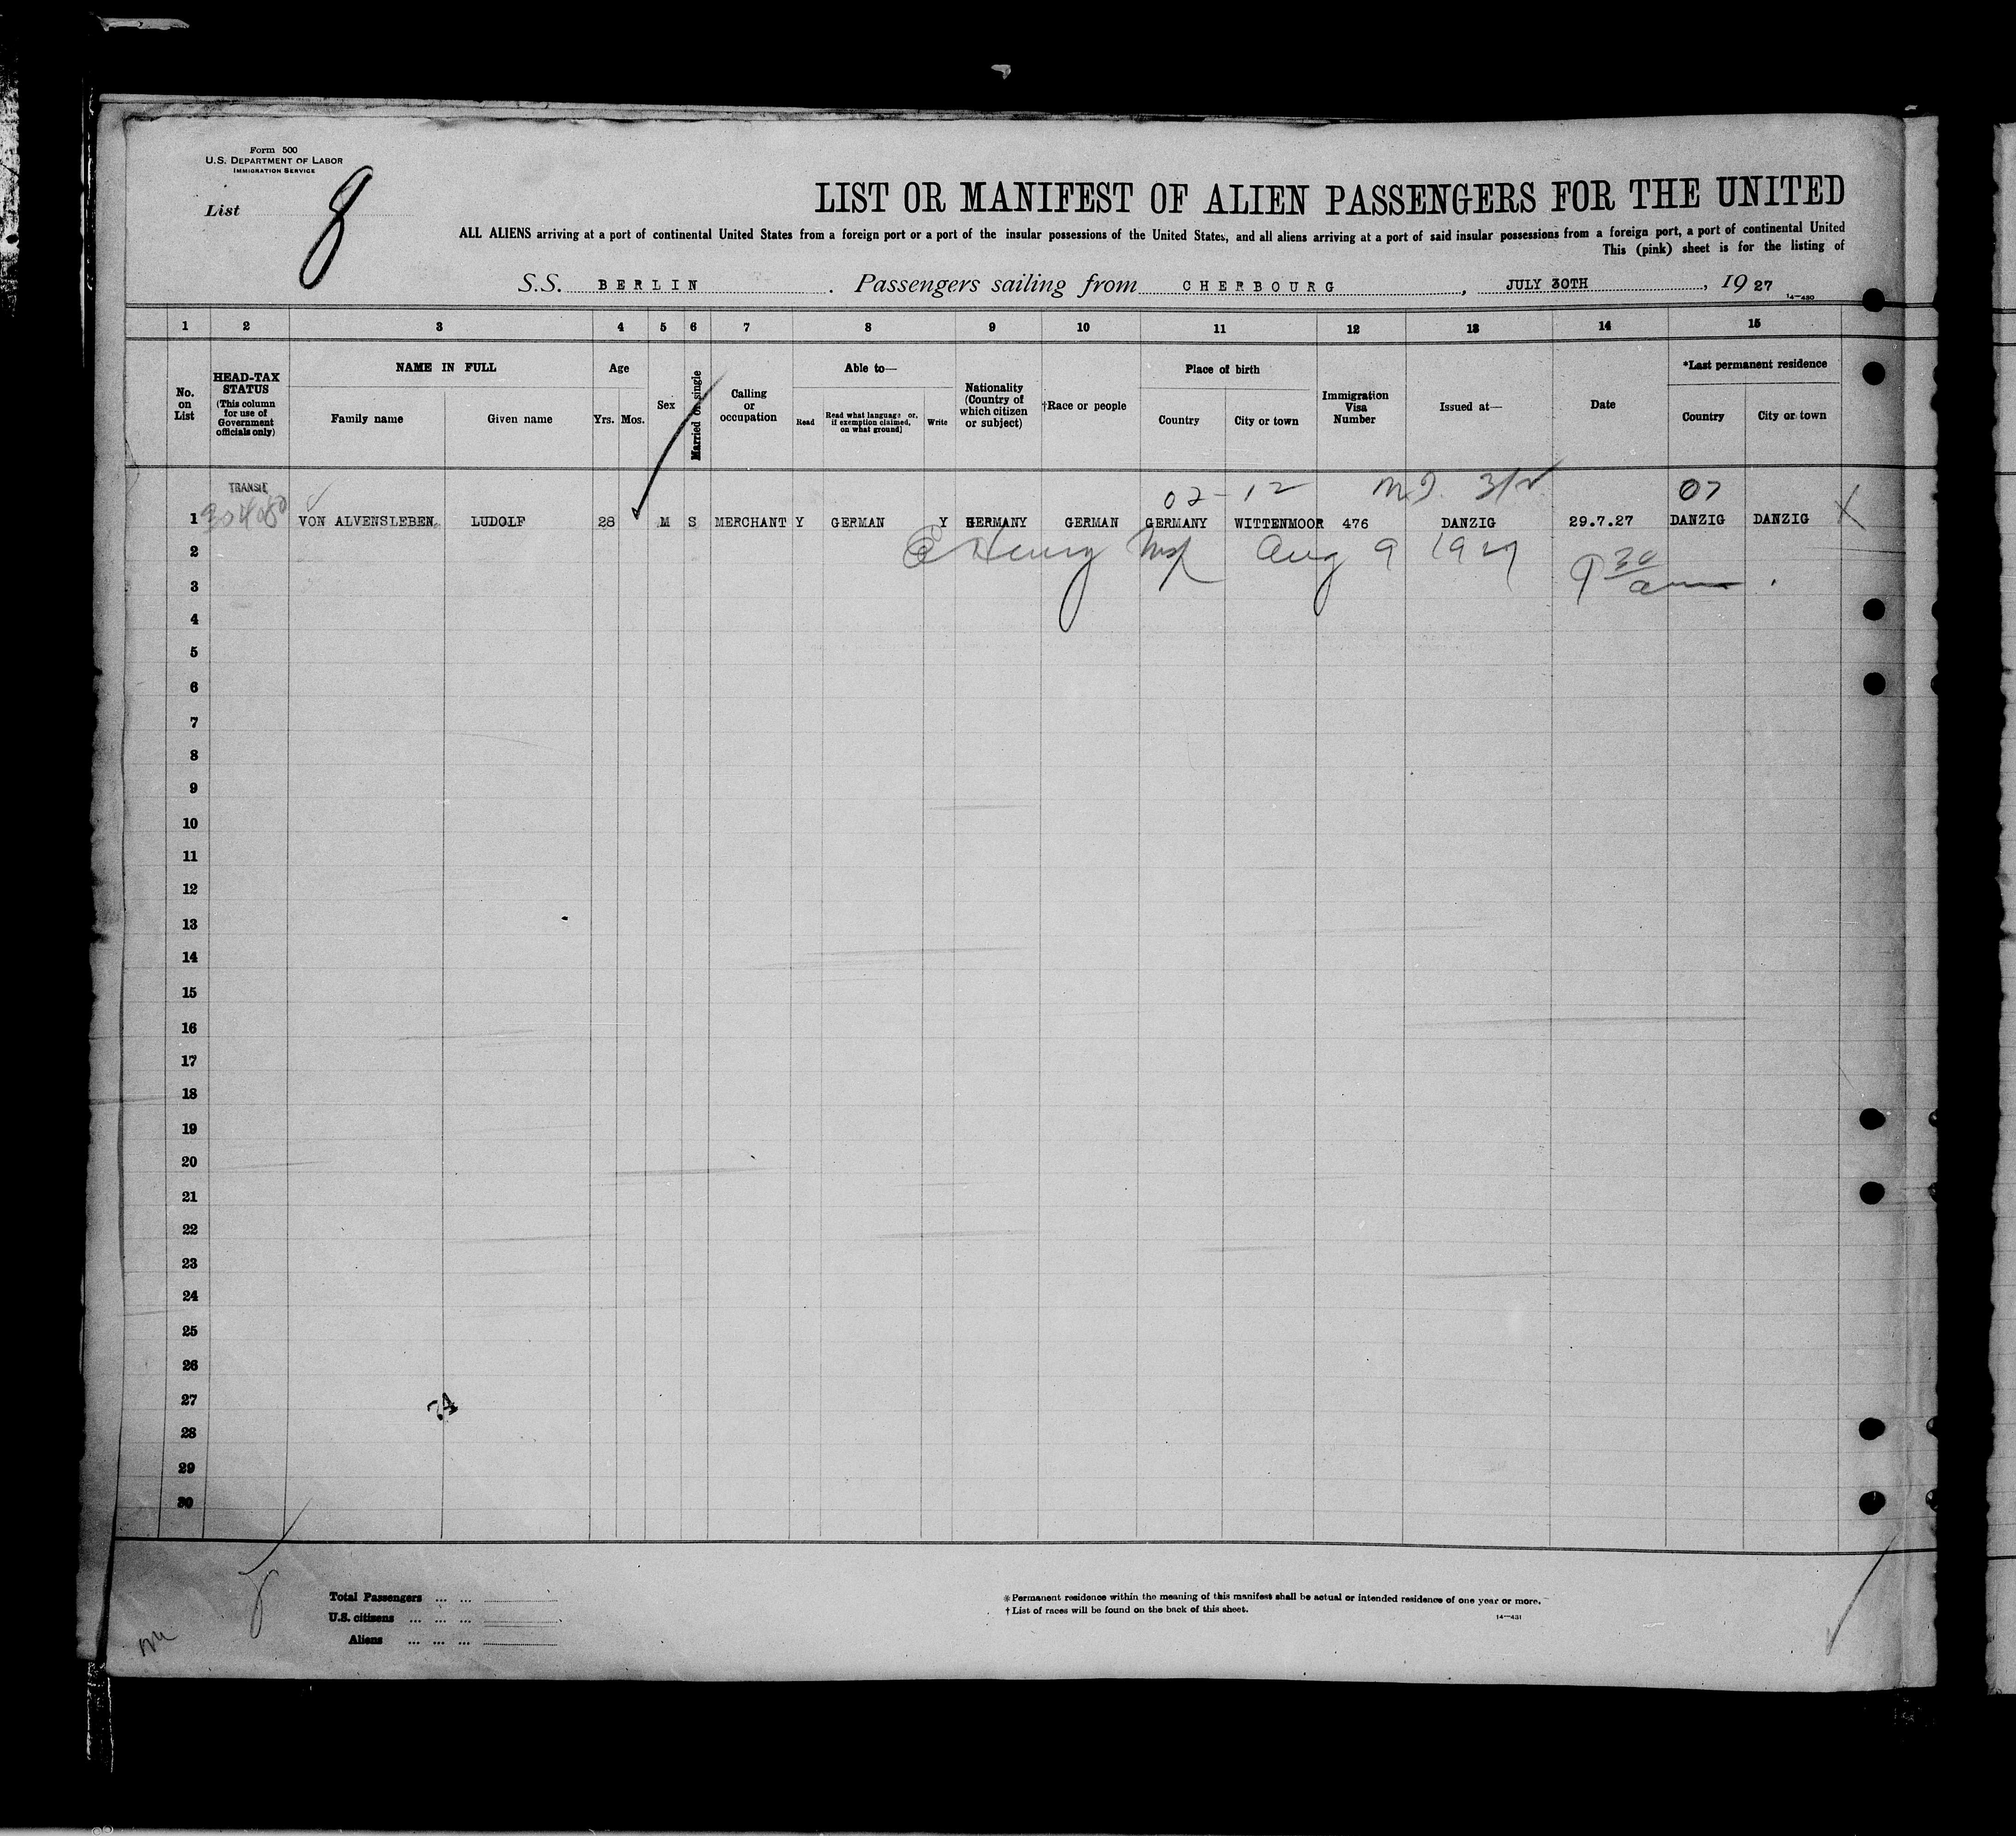 Form 500
U.S. DEPARTMENT OF LABOR
IMMIGRATION SERVICE
List 8
LIST OR MANIFEST OF ALIEN PASSENGERS FOR THE UNITED
ALL ALIENS arriving at a port of continental United States from a foreign port or a port of the insular possessions of the United States, and all aliens arriving at a port of said insular possessions from a foreign port, a port of continental United
This (pink) sheet is for the listing of
S.S. BERLIN . Passengers sailing from CHERBOURG , JULY 30TH , 19 27
14—430
1 2 3 4 5 6 7 8 9 10 11 12 13 14 15
No. on List
HEAD-TAX STATUS (This column for use of Government officials only)
NAME IN FULL
Family name Given name
Age
Yrs. Mos.
Sex
Married or single
Calling or occupation
Able to—
Read Read what language or, if exemption claimed, on what ground] Write
Nationality (Country of which citizen or subject)
†Race or people
Place of birth
Country City or town
Immigration Visa Number
Issued at—
Date
*Last permanent residence
Country City or town
TRANSIT 02-12 07
1 VON ALVENSLEBEN LUDOLF 28 M S MERCHANT Y GERMAN Y GERMANY GERMAN GERMANY WITTENMOOR 476 DANZIG 29.7.27 DANZIG DANZIG X
2 Henry Insp Aug 9 1927
3 9 30 am
4
5
6
7
8
9
10
11
12
13
14
15
16
17
18
19
20
21
22
23
24
25
26
27
28
29
30
Total Passengers ... ...
U.S. citizens ... ... ...
Aliens ... ... ...
* Permanent residence within the meaning of this manifest shall be actual or intended residence of one year or more.
† List of races will be found on the back of this sheet.
14—431